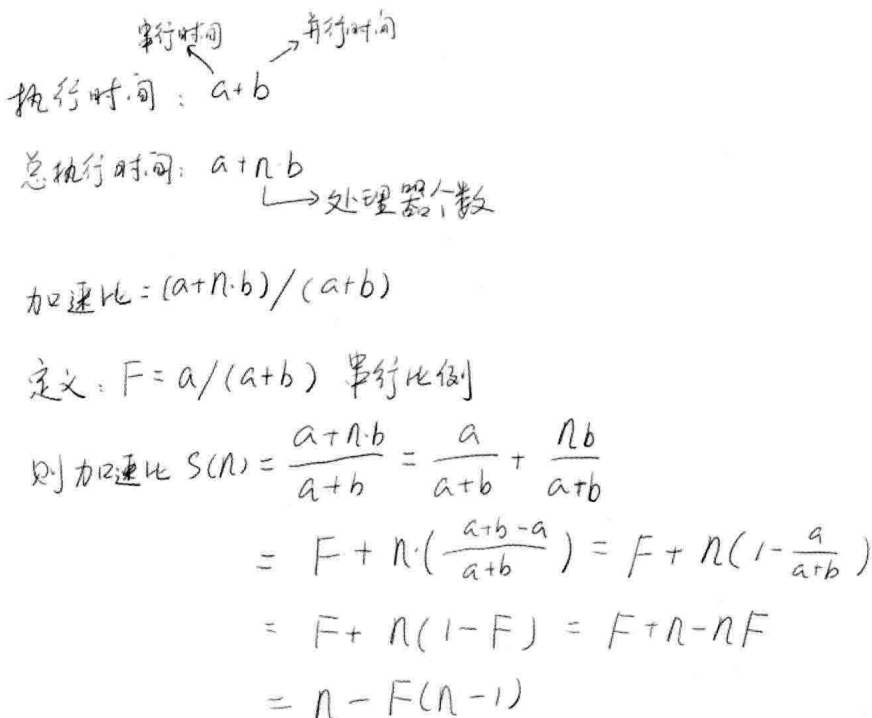 串行时间 并行时间
执行时间：a+b
总执行时间：a+n·b
处理器个数
加速比=(a+n·b)/(a+b)
定义：F=a/(a+b) 串行比例
则加速比 S(n)=\frac{a+n·b}{a+b}=\frac{a}{a+b}+\frac{nb}{a+b}
=F+n·(\frac{a+b-a}{a+b})=F+n(1-\frac{a}{a+b})
=F+n(1-F)=F+n-nF
=n-F(n-1)